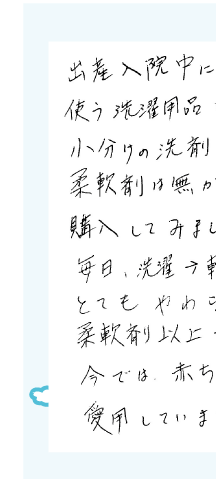 出産入院中に
使う洗濯用品
小分けの洗剤
柔軟剤は無か
購入してみまし
毎日、洗濯→乾
とても やわら
柔軟剤以上
今では、赤ち
愛用していま